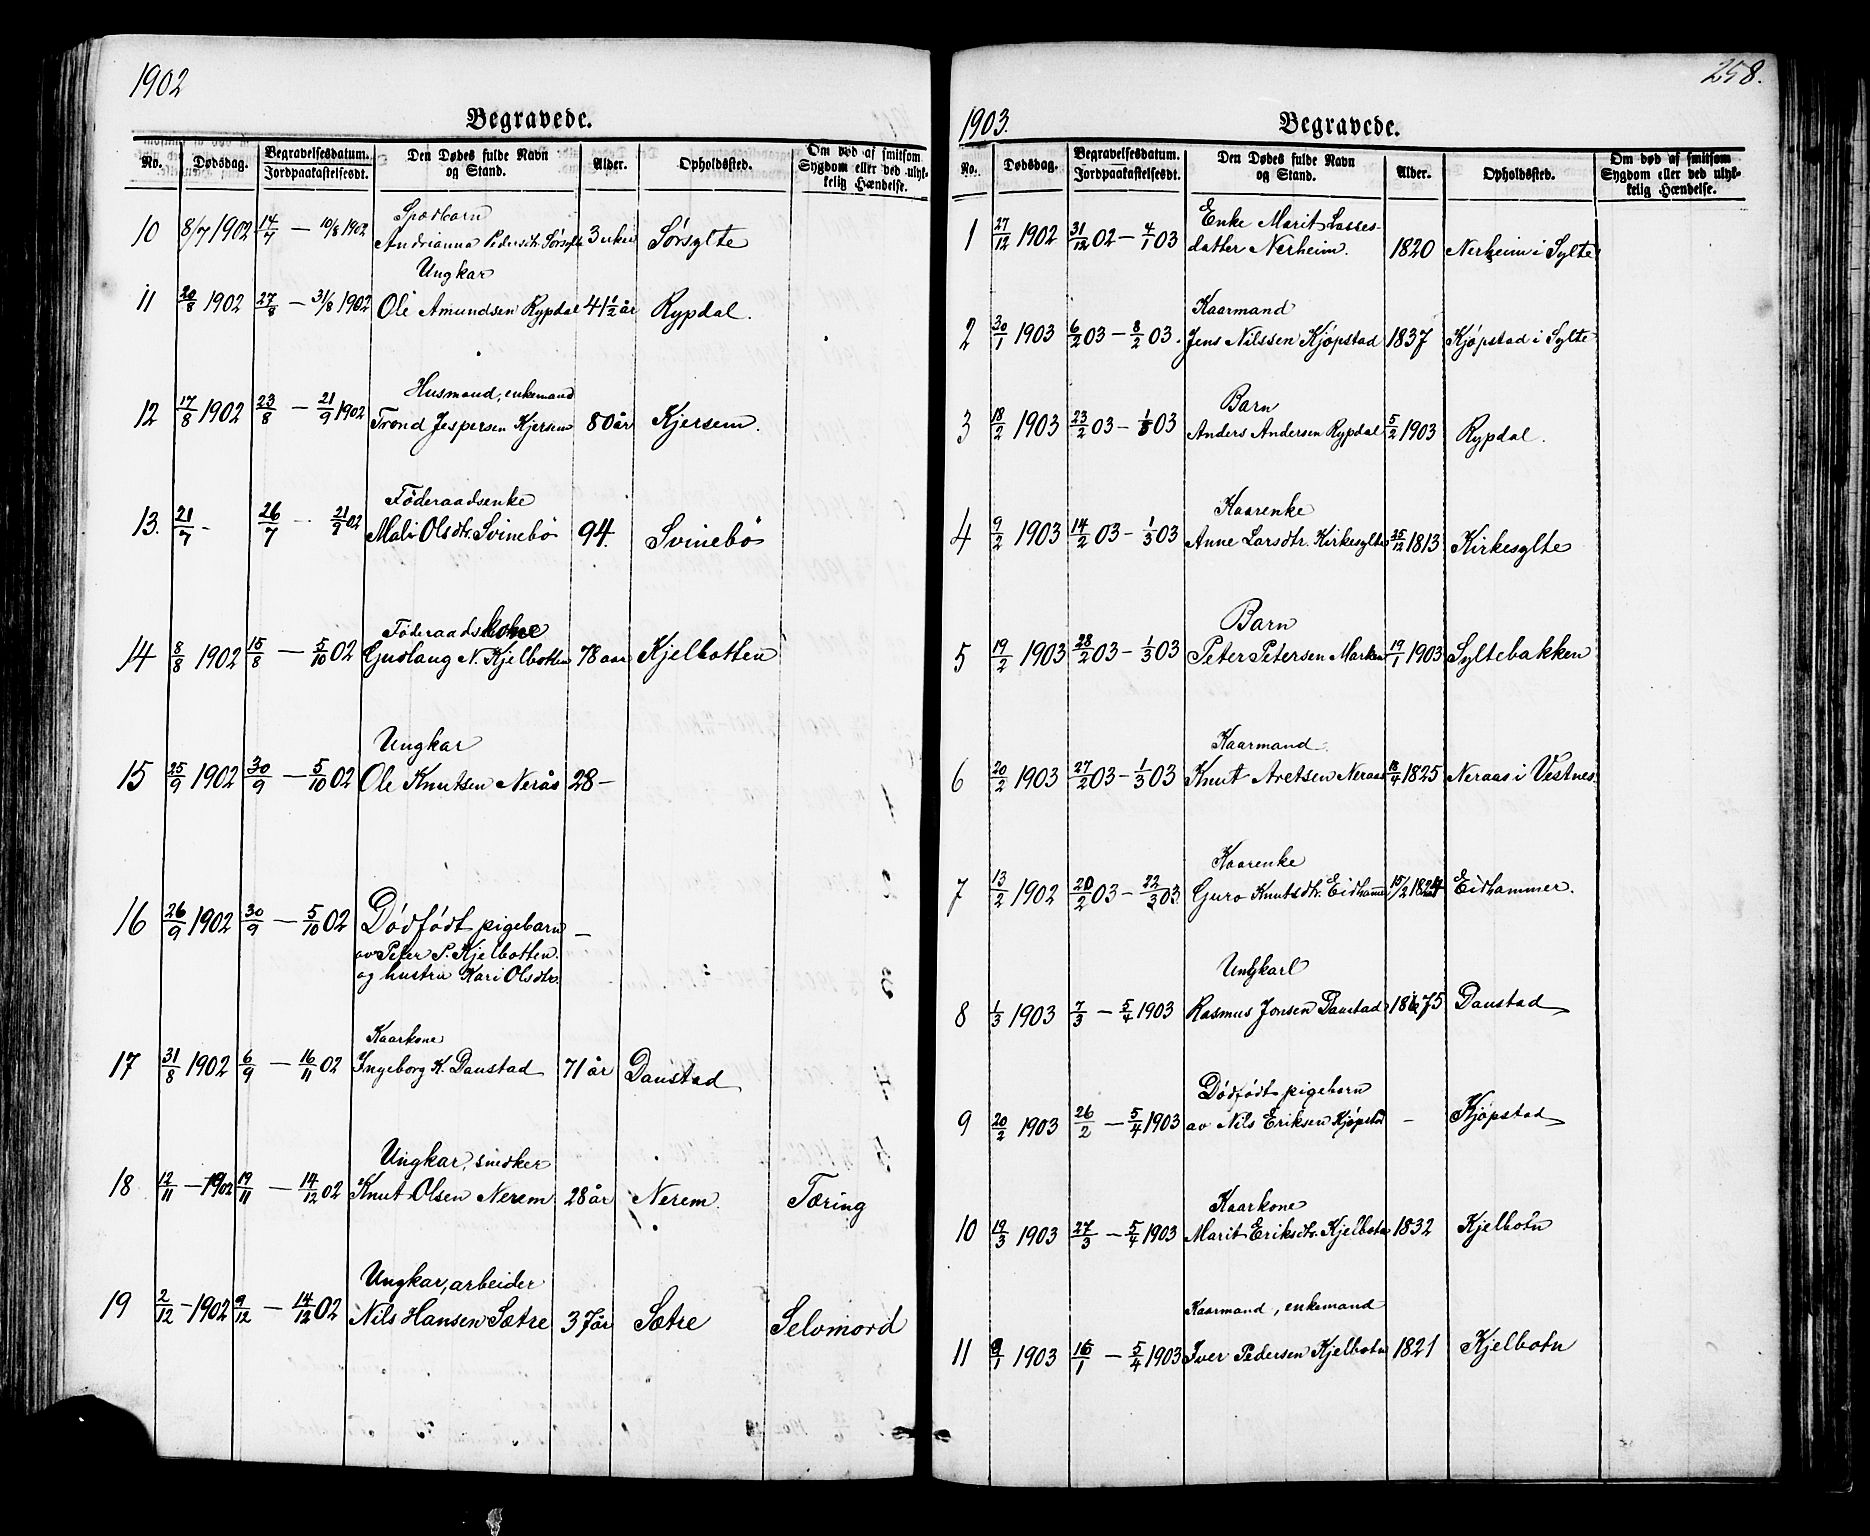 1902
Begravede.
No. Dødsdag. Begravelsesdatum. Jordpaakastelsesdt. Den Dødes fulde Navn og Stand. Alder. Opholdssted. Om død af smitsom Sygdom eller ved ulykkelig Hændelse.
Spædbarn
10 8/7 1902 14/7 — 10/8 1902 Andrianna Pedersdt. Sørsylte 3 uker Sørsylte
Ungkar
11 20/8 1902 27/8 — 31/8 1902 Ole Amundsen Rypdal 41 1/2 år Rypdal.
Husmand, enkemand
12 17/8 1902 23/8 — 21/9 1902 Trond Jespersen Kjersem 80 år Kjersem.
Føderaadsenke
13. 21/7 - 26/7 — 21/9 02 Mali Olsdtr. Svinebø 94. Svinebø
Føderaadskone
14 8/8 1902 15/8 — 5/10 02 Gudlaug N. Kjelbotten 78 aar Kjelbotten
Ungkar
15 25/9 1902 30/9 — 5/10 02 Ole Knutsen Nerås 28 —
16 26/9 1902 30/9 — 5/10 02 Dødfødt pigebarn —
av Peter P. Kjelbotten
og hustru Kari Olsdtr.
Kaarkone
17 31/8 1902 6/9 — 16/11 02 Ingeborg K. Daustad 71 år Daustad
Ungkar, snedker
18 12/11 — 1902 19/11 — 14/12 02 Knut Olsen Nerem 28 år Nerem Tæring
Ungkar, arbeider
19 2/12 — 1902 9/12 — 14/12 02 Nils Hansen Sætre 37 år Sætre Selvmord
258.
1903.
Begravede.
No. Dødsdag. Begravelsesdatum. Jordpaakastelsesdt. Den Dødes fulde Navn og Stand. Alder. Opholdssted. Om død af smitsom Sygdom eller ved ulykkelig Hændelse.
Enke Marit Lasses-
1 27/12 1902 31/12 02 — 4/1 03 datter Nerheim. 1820 Nerheim i Sylte
Kaarmand
2 30/1 1903 6/2 03 — 8/2 03. Jens Nilssen Kjøpstad 1837 Kjøpstad i Sylte
Barn
3 18/2 1903 23/2 03 — 1/3 03 Anders Andersen Rypdal 5/2 1903 Rypdal.
Kaarenke
4 9/2 1903 14/2 03 — 1/3 03 Anne Larsdtr. Kirkesylte 25/12 1813 Kirkesylte
Barn
5 19/2 1903 28/2 03 — 1/3 03 Peter Petersen Marken 19/1 1903 Syltebakken
Kaarmand
6 20/2 1903 27/2 03 — 1/3 03 Knut Aretsen Neraas 18/4 1825 Neraas i Vestnes
Kaarenke
7 13/2 1902 20/2 03 — 22/3 03. Guro Knutsdtr. Eidhammer 15/2 1824 Eidhammer.
Ungkarl
8 1/3 1903 7/3 — 5/4 1903 Rasmus Jonsen Daustad 1875 Daustad
Dødfødt pigebarn
9 20/2 1903 26/2 — 5/4 1903 av Nils Eriksen Kjøpstad — Kjøpstad
Kaarkone
10 19/3 1903 27/3 — 5/4 1903 Marit Eriksdtr. Kjelbotn 1832 Kjelbotn
Kaarmand, enkemand
11 9/1 1903 16/1 — 5/4 1903 Iver Pedersen Kjelbotn 1821 Kjelbotn